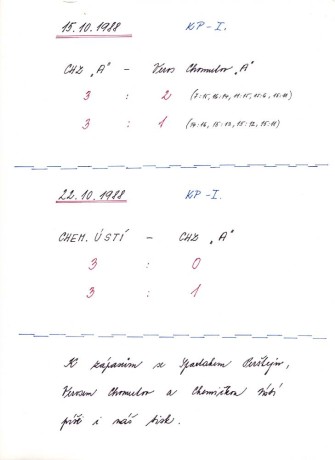 15.10.1988 KP-I.
CHZ "A" - Veros Chomutov "A"
3 : 2 (3:15, 16:14, 11:15, 15:6, 15:11)
3 : 1 (14:16, 15:13, 15:12, 15:11)
22.10.1988 KP-I.
CHEM. ÚSTÍ - CHZ "A"
3 : 0
3 : 1
K zápasům se Spartakem Perštejn,
Verosem Chomutov a Chemičkou Ústí
píše i náš tisk.